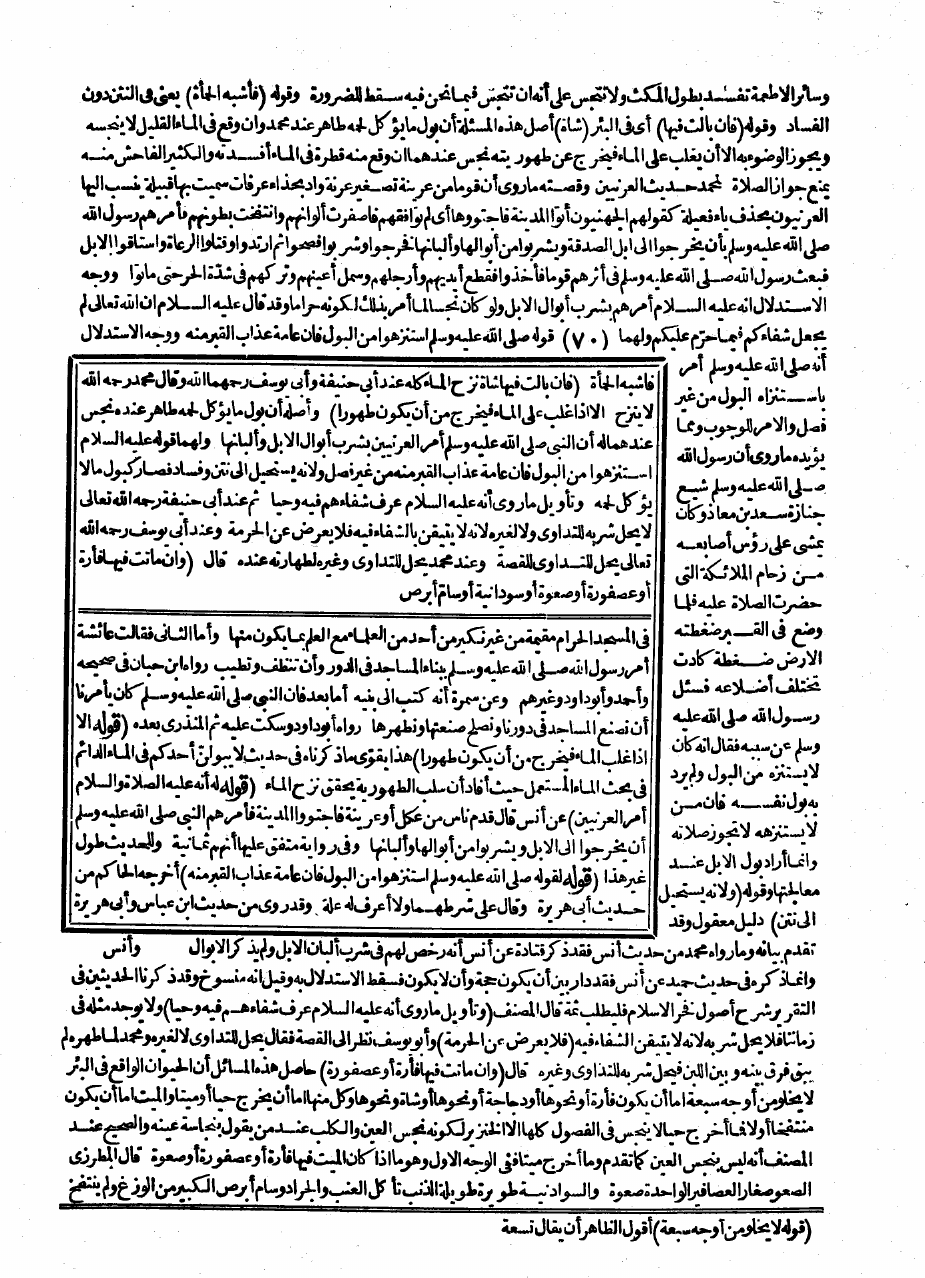 وسائر الاطعمة تفسد بطول المكث ولا تنجس على أنه ان تنجس فيما نحن فيه سقط للضرورة وقوله (فأشبه الحمأة) يعنى فى النتن دون
الفساد وقوله (فان بالت فيها) أى فى البئر (شاة) أصل هذه المسئلة أن بول ما يؤكل لحمه طاهر عند محمد وان وقع فى الماء القليل لا ينجسه
ويجوز الوضوء به الا أن يغلب على الماء فيخرج عن طهوريته نجس عندهما ان وقع منه قطرة فى الماء أفسدته والكثير الفاحش منه
يمنع جواز الصلاة لمحمد حديث العرنيين وقصته ما روى أن قوما من عرينة تصغير عرنة واد بحذاء عرفات سميت بها قبيلة ينسب اليها
العرنيون بحذف ياء فعيلة كقولهم الجهنيون أتوا المدينة فاجتووها أى لم توافقهم فاصفرت ألوانهم وانتفخت بطونهم فأمرهم رسول الله
صلى الله عليه وسلم بأن يخرجوا الى ابل الصدقة ويشربوا من أبوالها وألبانها فخرجوا وشربوا فصحوا ثم ارتدوا وقتلوا الرعاة واستاقوا الابل
فبعث رسول الله صلى الله عليه وسلم فى أثرهم قوما فأخذوا فقطع أيديهم وأرجلهم وسمل أعينهم وتركهم فى شدة الحر حتى ماتوا ووجه
الاستدلال انه عليه السلام أمرهم بشرب أبوال الابل ولو كان نجسا لما أمر بذلك لكونه حراما وقد قال عليه السلام ان الله تعالى لم
يجعل شفاءكم فيما حرم عليكم ولهما (٧٠) قوله صلى الله عليه وسلم استنزهوا من البول فان عامة عذاب القبر منه ووجه الاستدلال
أنه صلى الله عليه وسلم أمر
باستنزاه البول من غير
فصل والامر للوجوب ومما
يؤيده ما روى أن رسول الله
صلى الله عليه وسلم شيع
جنازة سعد بن معاذ وكان
يمشى على رؤس أصابعه
من زحام الملائكة التى
حضرت الصلاة عليه فلما
وضع فى القبر ضغطته
الارض ضغطة كادت
تختلف أضلاعه فسئل
رسول الله صلى الله عليه
وسلم عن سببه فقال انه كان
لا يستنزه من البول ولم يرد
به بول نفسه فان من
لا يستنزهه لا تجوز صلاته
وانما أراد بول الابل عند
معالجتها وقوله (ولانه يستحيل
الى نتن) دليل معقول وقد
فأشبه الحمأة (فان بالت فيها شاة نزح الماء كله عند أبى حنيفة وأبى يوسف رحمهما الله وقال محمد رحمه الله
لا ينزح الا اذا غلب على الماء فيخرج من أن يكون طهورا) وأصله أن بول ما يؤكل لحمه طاهر عنده نجس
عندهما له أن النبى صلى الله عليه وسلم أمر العرنيين بشرب أبوال الابل وألبانها ولهما قوله عليه السلام
استنزهوا من البول فان عامة عذاب القبر منه من غير فصل ولانه يستحيل الى نتن وفساد فصار كبول ما لا
يؤكل لحمه وتأويل ما روى أنه عليه السلام عرف شفاءهم فيه وحيا ثم عند أبى حنيفة رحمه الله تعالى
لا يحل شربه للتداوى ولا لغيره لانه لا يتيقن بالشفاء فيه فلا يعرض عن الحرمة وعند أبى يوسف رحمه الله
تعالى يحل للتداوى للقصة وعند محمد يحل للتداوى وغيره لطهارته عنده قال (وان ماتت فيها فأرة
أو عصفورة أو صعوة أو سودانية أو سام أبرص
فى المسجد الحرام مقيمة من غير نكير من أحد من العلماء مع العلم بما يكون منها وأما الثانى فقالت عائشة
أمر رسول الله صلى الله عليه وسلم ببناء المساجد فى الدور وأن تنظف وتطيب رواه ابن حبان فى صحيحه
وأحمد وأبو داود وغيرهم وعن سمرة أنه كتب الى بنيه أما بعد فان النبى صلى الله عليه وسلم كان يأمرنا
أن نصنع المساجد فى دورنا ونصلح صنعتها ونطهرها رواه أبو داود وسكت عليه ثم المنذرى بعده (قوله الا
اذا غلب الماء فيخرج من أن يكون طهورا) هذا يقوى ما ذكرناه فى حديث لا يبولن أحدكم فى الماء الدائم
فى بحث الماء المستعمل حيث أفاد أن سلب الطهورية يحقق نزح الماء (قوله له أنه عليه الصلاة والسلام
أمر العرنيين) عن أنس قال قدم ناس من عكل أو عرينة فاجتووا المدينة فأمرهم النبى صلى الله عليه وسلم
أن يخرجوا الى الابل ويشربوا من أبوالها وألبانها وفى رواية متفق عليها أنهم ثمانية وللحديث طول
غير هذا (قوله لقوله صلى الله عليه وسلم استنزهوا من البول فان عامة عذاب القبر منه) أخرجه الحاكم من
حديث أبى هريرة وقال على شرطهما ولا أعرف له علة وقد روى من حديث ابن عباس وأبى هريرة
تقدم بيانه وما رواه محمد من حديث أنس فقد ذكر قتادة عن أنس أنه رخص لهم فى شرب ألبان الابل ولم يذكر الابوال وأنس
وانما ذكره فى حديث حميد عن أنس فقد دار بين أن يكون حجة وأن لا يكون فسقط الاستدلال به وقيل انه منسوخ وقد ذكرنا الحديثين فى
التقرير شرح أصول فخر الاسلام فليطلب ثمة قال المصنف (وتأويل ما روى أنه عليه السلام عرف شفاءهم فيه وحيا) ولا يوجد مثله فى
زماننا فلا يحل شربه لانه لا يتيقن الشفاء فيه (فلا يعرض عن الحرمة) وأبو يوسف نظر الى القصة فقال يحل للتداوى لا لغيره ومحمد لما طهره لم
يبق فرق بينه وبين اللبن فيحل شربه للتداوى وغيره قال (وان ماتت فيها فأرة أو عصفورة) حاصل هذه المسائل أن الحيوان الواقع فى البئر
لا يخلو من أوجه سبعة اما أن يكون فأرة أو نحوها أو دجاجة أو نحوها أو شاة ونحوها وكل منها اما أن يخرج حيا أو ميتا والميت اما أن يكون
منتفخا أو لا فما أخرج حيا لا ينجس فى الفصول كلها الا الخنزير لكونه نجس العين والكلب عند من يقول بنجاسة عينه والصحيح عند
المصنف أنه ليس بنجس العين كما تقدم وما أخرج ميتا ففى الوجه الاول وهو ما اذا كان الميت فيها فأرة أو عصفورة أو صعوة قال المطرزى
الصعو صغار العصافير الواحدة صعوة والسوادنية طويرة طويلة الذنب تأكل العنب والجراد وسام أبرص الكبير من الوزغ ولم ينتفخ
(قوله لا يخلو من أوجه سبعة) أقول الظاهر أن يقال تسعة